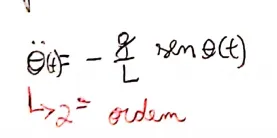 θ̈(t) = - g/L sen θ(t)
↳ 2ª ordem